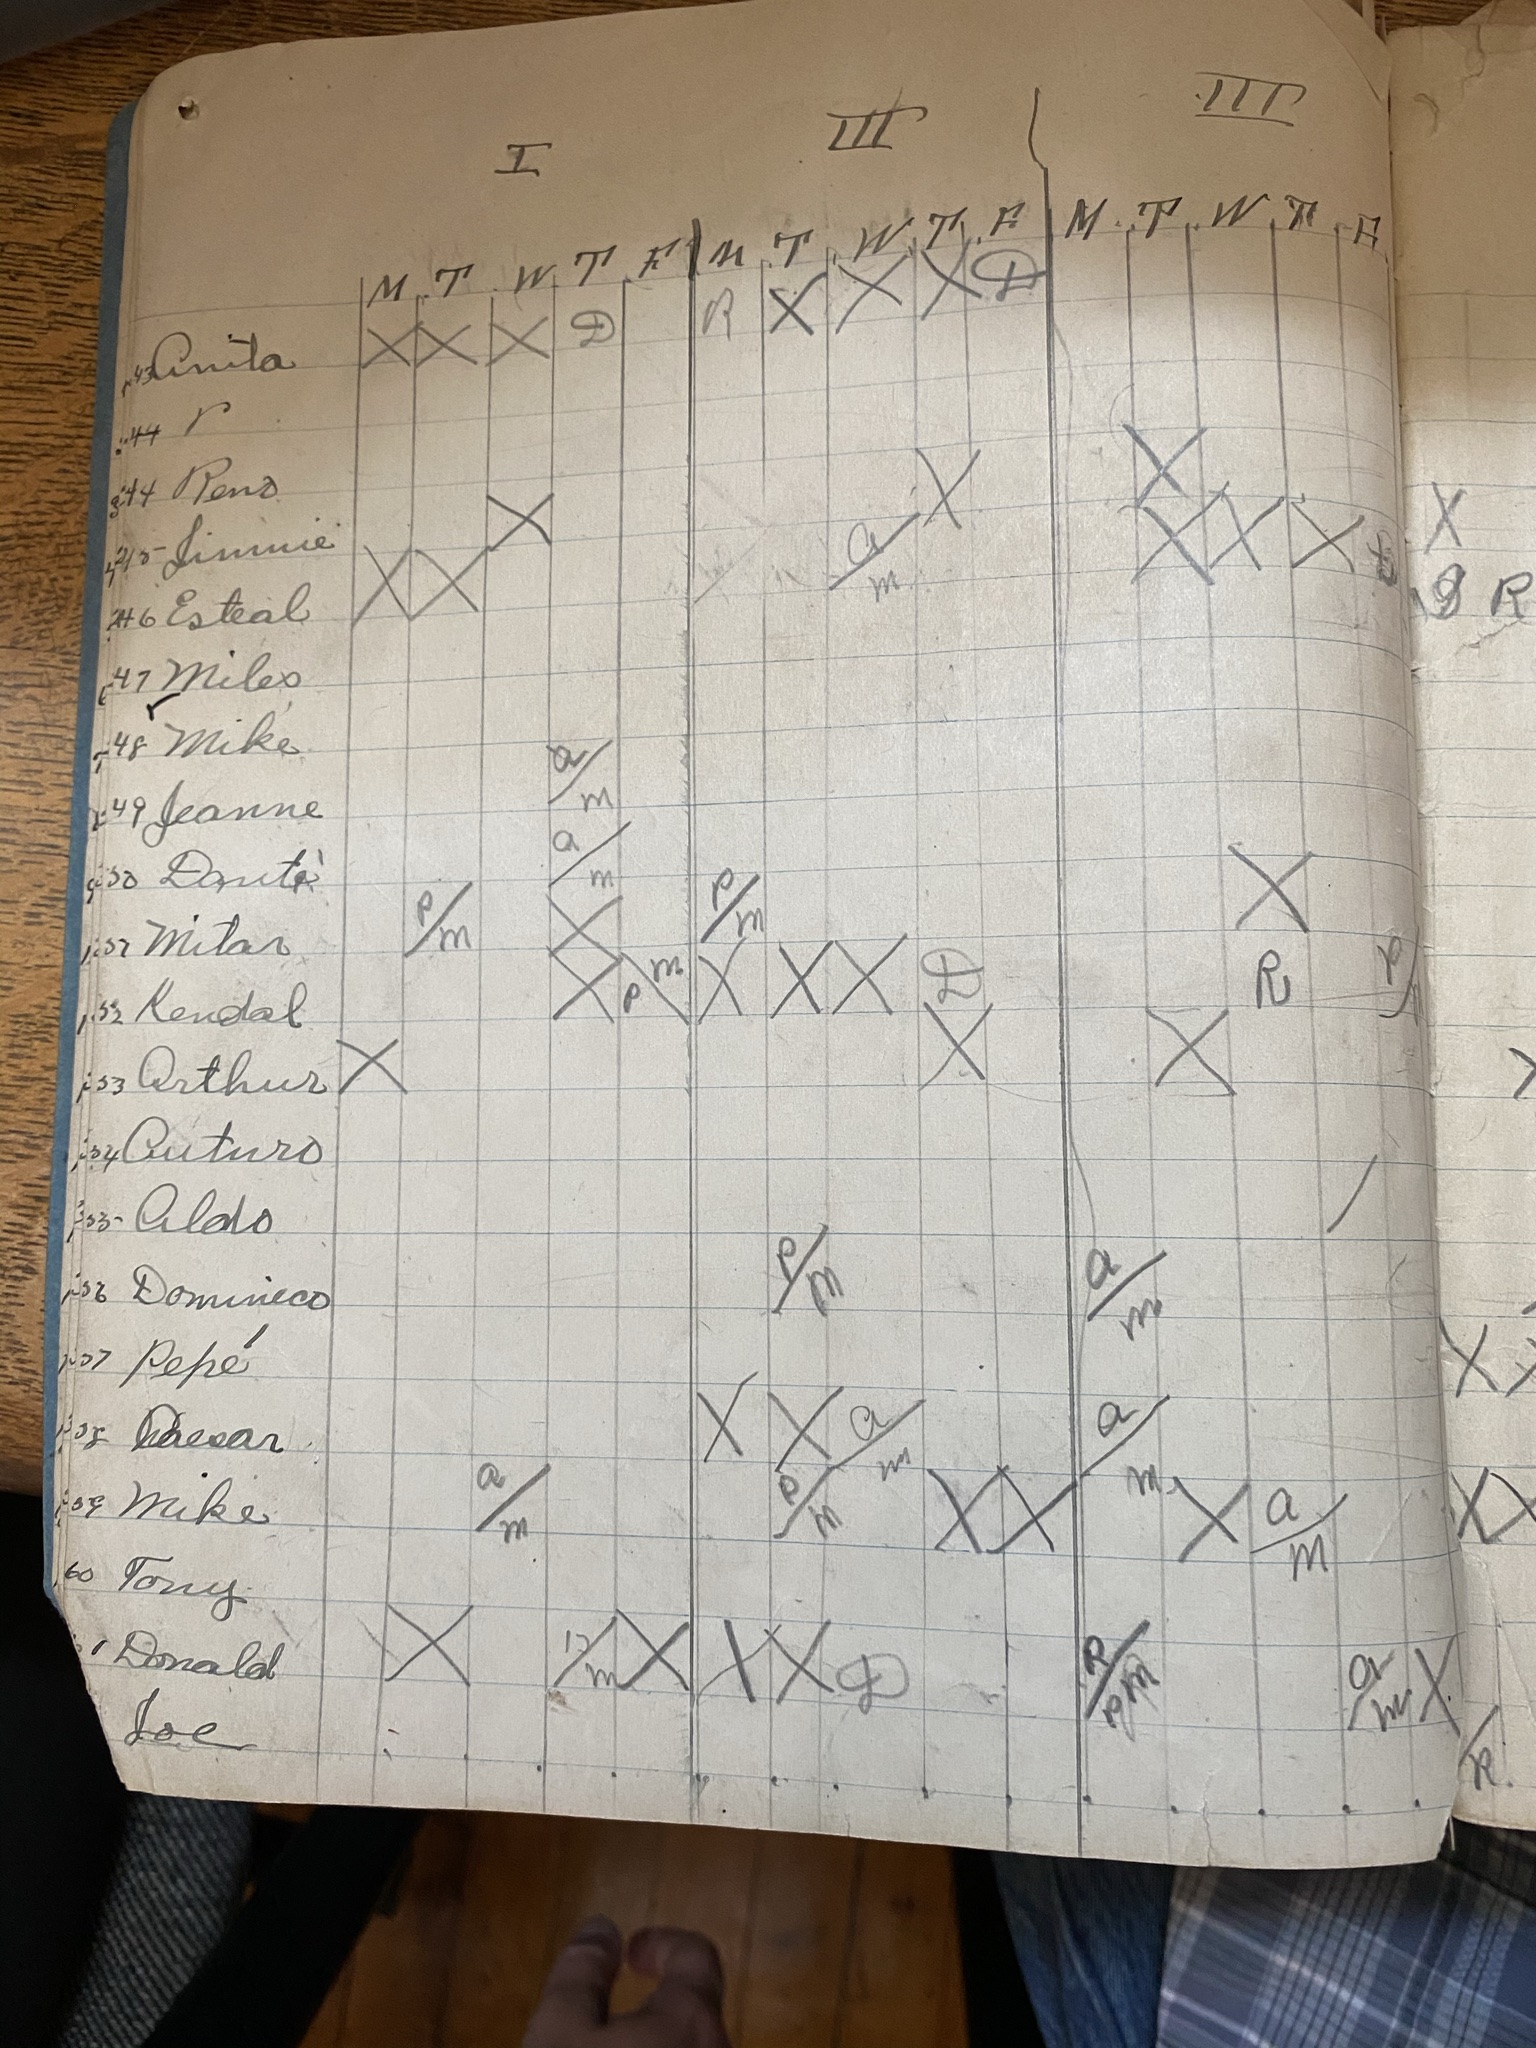 I III III
M T W T F M T W T F M T W T F
43 Anita X X X D R X X X D
44 r
44 Reno X X X
45 Jimmie X a/m X X X D
46 Esteal X X
47 Miles
48 Mike
49 Jeanne a/m
50 Danté a/m X
52 Mitar P/m X P/m R P/m
52 Kendal X P/m X X X D
53 Arthur X X X
54 Auturo
55 Aldo /
56 Domineco P/m a/m
57 Pepé
58 Caesar X X a/m a/m
59 Mike a/m P/m X X X a/m
60 Tony
1 Donald X P/m X X X D R/Pm a/m X
Joe
X
R
X
X X
X X
R.